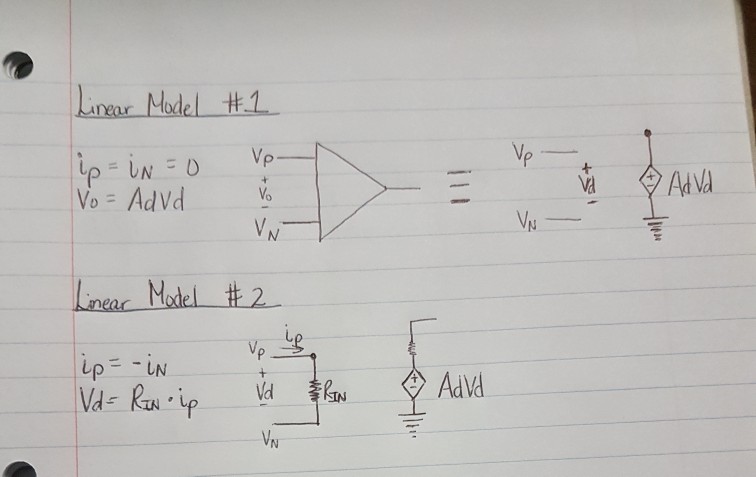 Linear Model #1
ip = iN = 0
Vo = AdVd
VP
+
Vo
-
VN
≡
VP
+
Vd
-
VN
+
-
AdVd
Linear Model #2
ip = -iN
Vd = RIN · ip
ip
VP
+
Vd
-
VN
RIN
+
-
AdVd